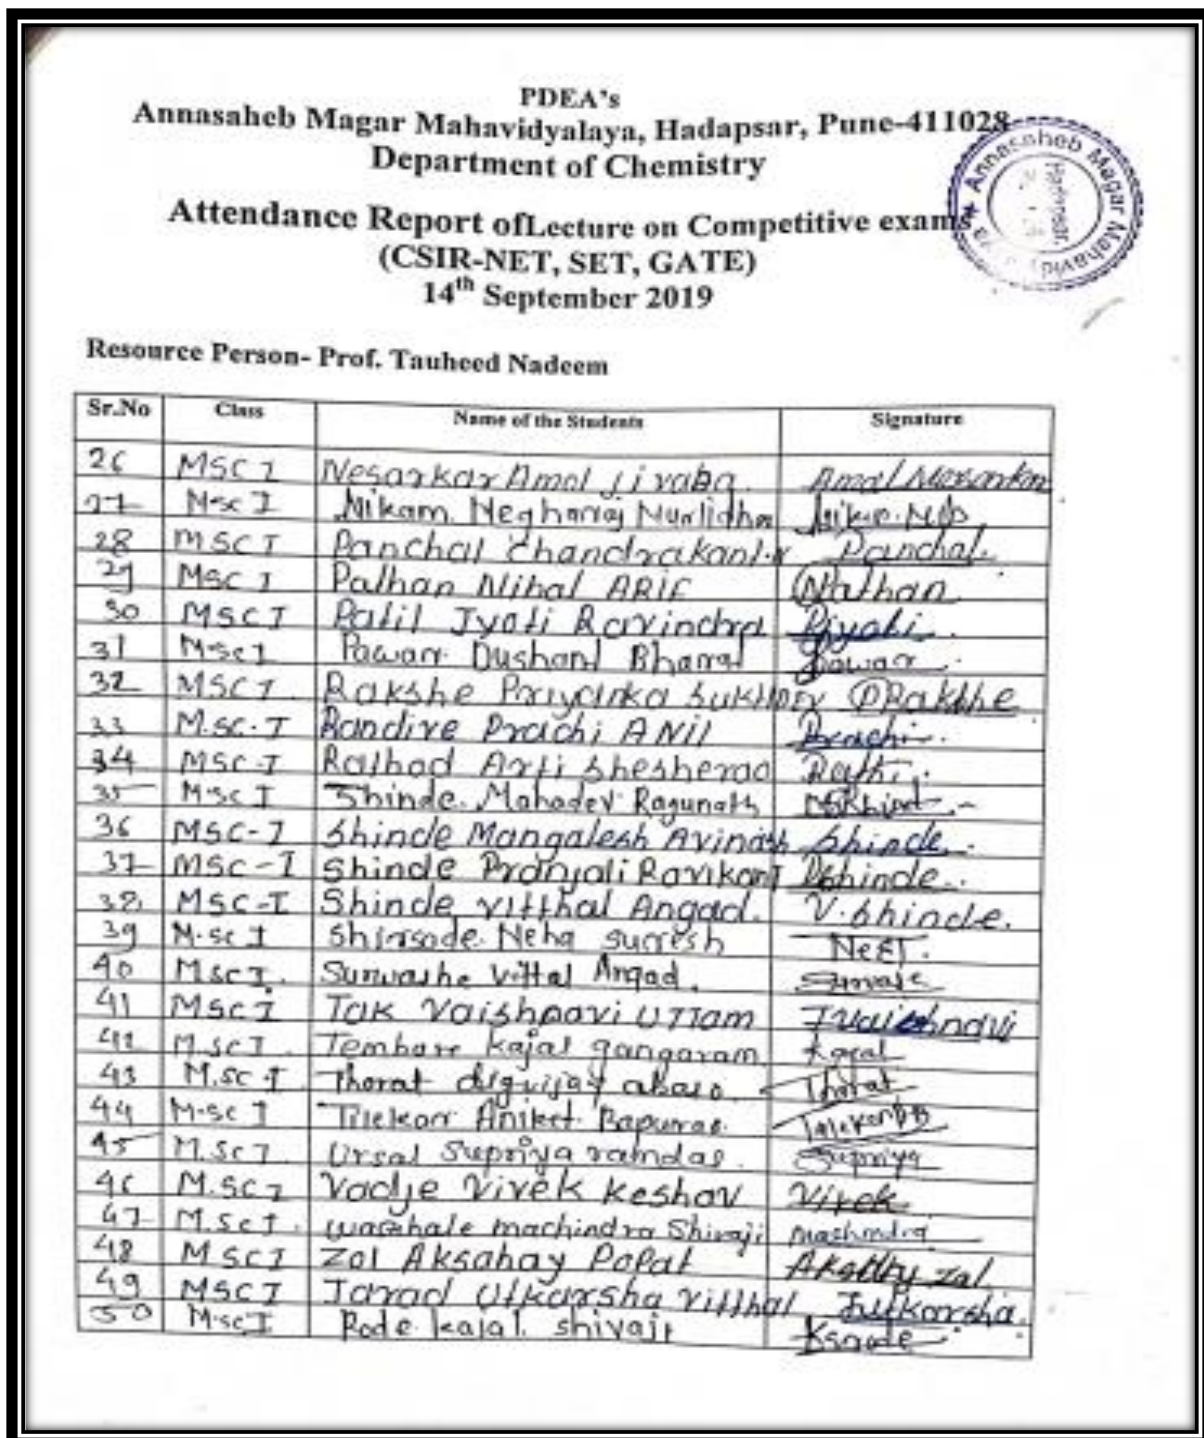 PDEA's
Annasaheb Magar Mahavidyalaya, Hadapsar, Pune-411028
Department of Chemistry
Annasaheb Magar Mahavidya
Hadapsar
Attendance Report ofLecture on Competitive exams
(CSIR-NET, SET, GATE)
14th September 2019
Resource Person- Prof. Tauheed Nadeem
Sr.No Class Name of the Students Signature
26 MSC I Nesarkar Amol Jivaba Amol Nesarkar
27 M-sc I Nikam Negharaj Murlidhar
28 MSC I Panchal Chandrakant Panchal.
29 MSC I Pathan Nihal ARIF Nathan
30 MSC I Patil Jyoti Ravindra Pjyoti.
31 M.sc I Pawar Dushant Bharat Pawar
32 MSC I Rakshe Priyanka PRakshe
33 M.sc.I Randive Prachi ANil Prachi.
34 MSC-I Rathod Arti shesherao
35 M.sc I Shinde Mahadev Ragunath
36 MSC-I Shinde Mangalesh Avinash Shinde.
37 MSC-I Shinde Pranjali Ravikant Pshinde.
38 MSC-I Shinde Vitthal Angad. V.Shinde.
39 M.sc I Shirsode Neha suresh
40 M.sc I. Surwashe Vittal Angad.
41 MSC I Tak Vaishnavi UTTam TVaishnavi
42 M.sc I. Tembare kajal gangaram kajal
43 M.sc.I Thorat digvijay abaso. Thorat
44 M-sc I Tilekar Aniket Bapurao
45 M.sc I. Ursal Supriya ramdas. Supriya
46 M.sc I Vadje Vivek keshav Vivek
47 M.sc I. machindra Shivaji machindra
48 MSC I Zol Aksahay Popat Zol
49 MSC I Jarad Utkarsha Vitthal Jutkarsha.
50 M.sc I Rode kajal shivaji